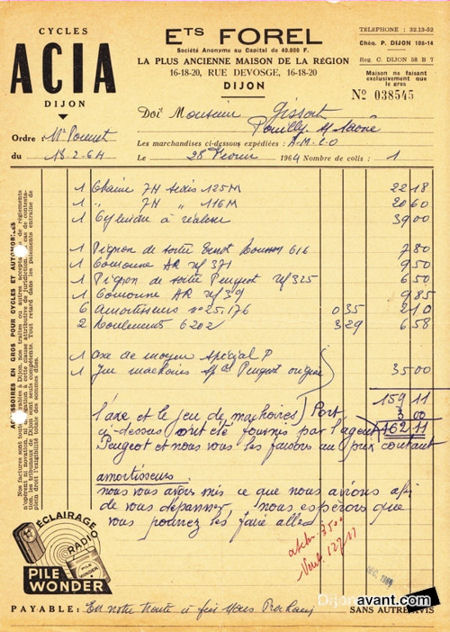 CYCLES
ACIA
DIJON
Ets FOREL
Société Anonyme au Capital de 40.000 F.
LA PLUS ANCIENNE MAISON DE LA RÉGION
16-18-20, RUE DEVOSGE, 16-18-20
DIJON
TÉLÉPHONE : 32.13-52
Chèq. P. DIJON 108-14
Reg. C. DIJON 58 B 7
Maison ne faisant exclusivement que le gros
No 038545
Doit Monsieur Gissot
Pouilly s/ Saône
Ordre : Mr
du 18-2-64
Les marchandises ci-dessous expédiées :
Le 28 Février 1964 Nombre de colis : 1
1 Chaine 7H Sedis 125M 22 18
1 " 7H " 116M 20 60
1 Cylindre à réaléser 39 00
1 Pignon de sortie 616 7 80
1 Couronne AR ref 371 9 50
1 Pignon de sortie Peugeot ref 325 6 50
1 Couronne AR ref 39 9 85
6 amortisseurs n° 25.176 0 35 2 10
2 Roulements 6202 3 29 6 58
1 axe de moyeu spécial P
1 Jeu machoires Peugeot origine 35 00
159 11
Port 3 00
162 11
l'axe et le jeu de machoires
ci-dessus ont été fournis par l'agent
Peugeot et nous vous les faisons au prix coutant
amortisseurs
nous vous avons mis ce que nous avions afin
de vous dépanner, nous espérons que
vous pourrez les faire aller
3500
127 11
ACCESSOIRES EN GROS POUR CYCLES ET AUTOMOBILES
ÉCLAIRAGE
RADIO
PILE WONDER
PAYABLE : En notre traite à fin Mars Prochain
SANS AUTRE AVIS
Dijonavant.com